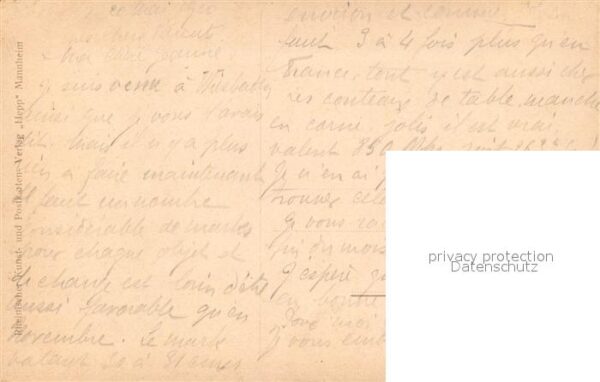 mai 1920
chers Parents
chère Jeanne
je suis venu à Wiesbaden
ainsi que je vous l'avais
dit. Mais il n'y a plus
rien à faire maintenant
Il faut un nombre
considérable de marks
pour chaque objet et
le change est loin d'être
aussi favorable qu'en
novembre. Le mark
valant 30 à 31 cmes
environ et comme
faut 3 à 4 fois plus qu'en
France, tout y est aussi cher
Les couteaux de table, manche
en corne jolis il est vrai,
valent 850 Mks soit
Je n'en ai
trouver
Je vous
fin du mois
J'espère
en bonne
Pour moi
Je vous
Rheinischer Kunst- und Postkarten-Verlag „Hepp" Mannheim
privacy protection
Datenschutz